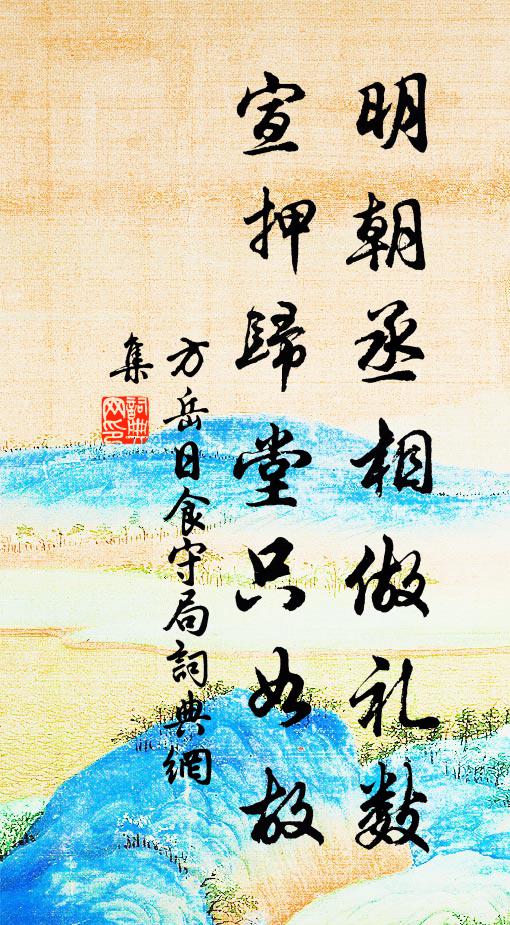 明朝丞相做礼数
宣押歸堂只如故
方岳日食守局詞典網
集
詞典網印